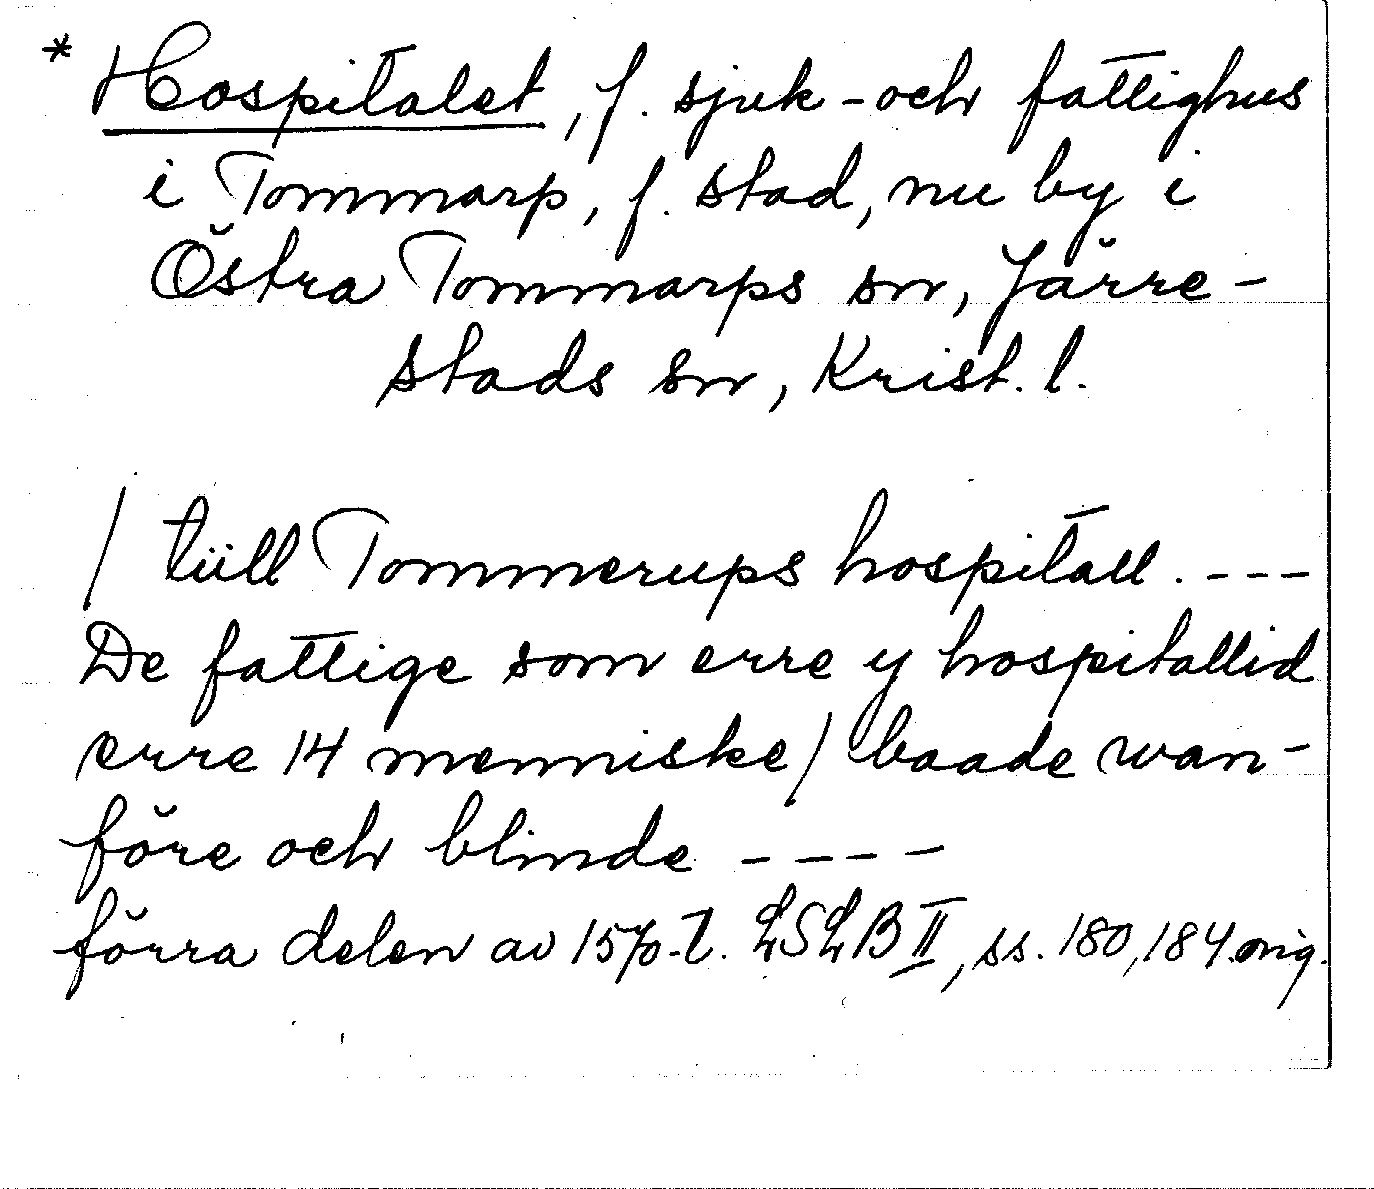 * Hospitalet, f. sjuk-och fattighus
i Tommarp, f. stad, nu by i
Östra Tommarps sn, Järre-
stads sn, Krist. l.
/ tüll Tommerups hospitall. ---
De fattige som erre y hospitallid
erre 14 menniske / baade wan-
före och blinde ----
förra delen av 1570-t. LSLB II, ss. 180, 184. orig.